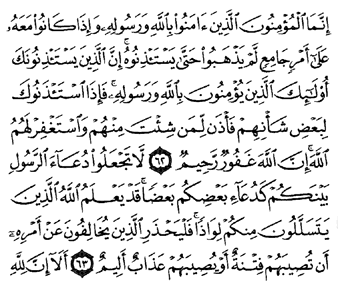 إِنَّمَا ٱلْمُؤْمِنُونَ ٱلَّذِينَ ءَامَنُوا۟ بِٱللَّهِ وَرَسُولِهِۦ وَإِذَا كَانُوا۟ مَعَهُۥ
عَلَىٰٓ أَمْرٍ جَامِعٍ لَّمْ يَذْهَبُوا۟ حَتَّىٰ يَسْتَـْٔذِنُوهُ ۚ إِنَّ ٱلَّذِينَ يَسْتَـْٔذِنُونَكَ
أُو۟لَٰٓئِكَ ٱلَّذِينَ يُؤْمِنُونَ بِٱللَّهِ وَرَسُولِهِۦ ۚ فَإِذَا ٱسْتَـْٔذَنُوكَ
لِبَعْضِ شَأْنِهِمْ فَأْذَن لِّمَن شِئْتَ مِنْهُمْ وَٱسْتَغْفِرْ لَهُمُ
ٱللَّهَ ۚ إِنَّ ٱللَّهَ غَفُورٌ رَّحِيمٌ ٦٢ لَّا تَجْعَلُوا۟ دُعَآءَ ٱلرَّسُولِ
بَيْنَكُمْ كَدُعَآءِ بَعْضِكُم بَعْضًا ۚ قَدْ يَعْلَمُ ٱللَّهُ ٱلَّذِينَ
يَتَسَلَّلُونَ مِنكُمْ لِوَاذًا ۚ فَلْيَحْذَرِ ٱلَّذِينَ يُخَالِفُونَ عَنْ أَمْرِهِۦٓ
أَن تُصِيبَهُمْ فِتْنَةٌ أَوْ يُصِيبَهُمْ عَذَابٌ أَلِيمٌ ٦٣ أَلَآ إِنَّ لِلَّهِ